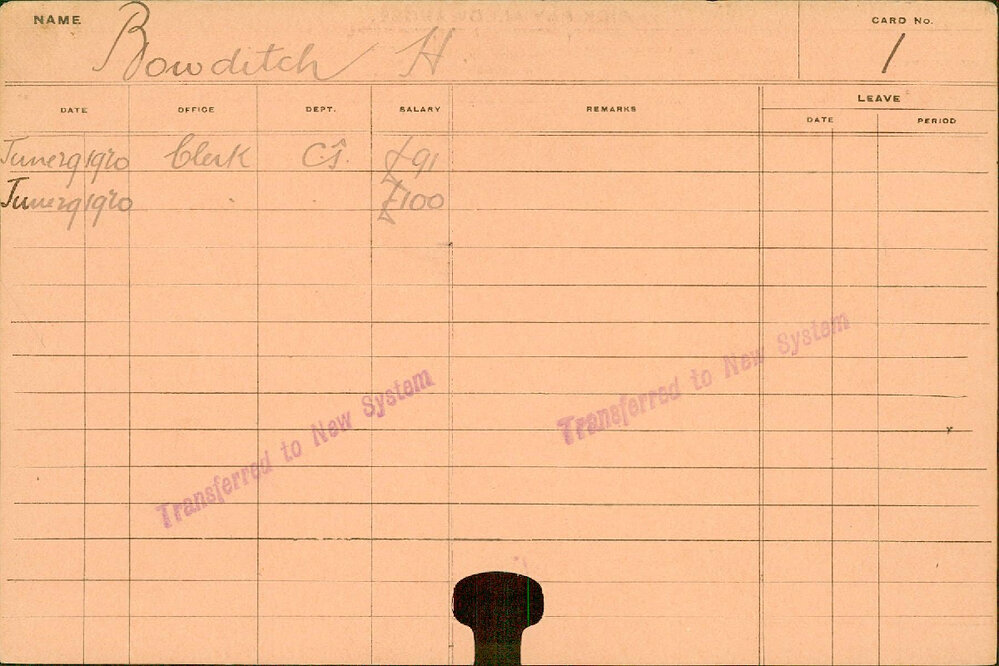 NAME Bowditch H CARD No. 1
DATE OFFICE DEPT. SALARY REMARKS LEAVE
DATE PERIOD
June 29 1920 Clerk CS. £91
June 29 1920 £100
Transferred to New System
Transferred to New System